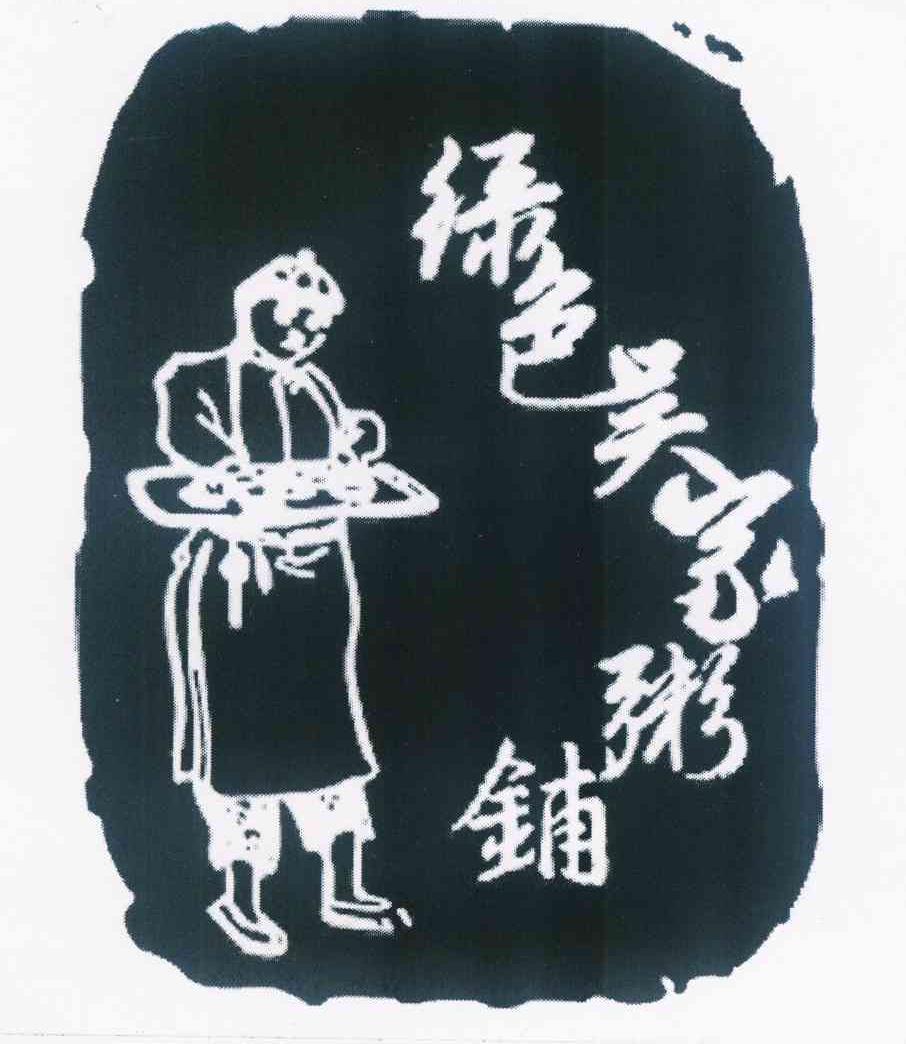 绿色吴家粥鋪